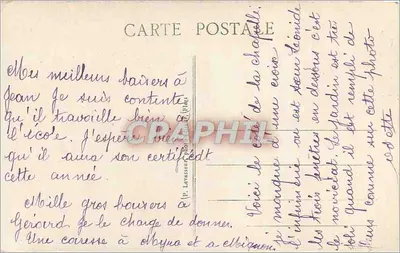 CARTE POSTALE
Mes meilleurs baisers à
Jean Je suis contente
qu'il travaille bien à
l'école. J'espère
qu'il aura son certificat
cette année.
Mille gros baisers à
Gérard je le charge de donner
Une caresse à Myra et a Mignon.
Voici le côté de la chapelle
je marque d'une croix
l'infirmerie où est sœur Léonide
les trois fenêtres en dessous c'est
le noviciat. Le jardin est très
joli quand il est rempli de
fleurs comme sur cette photo
CARPHIL